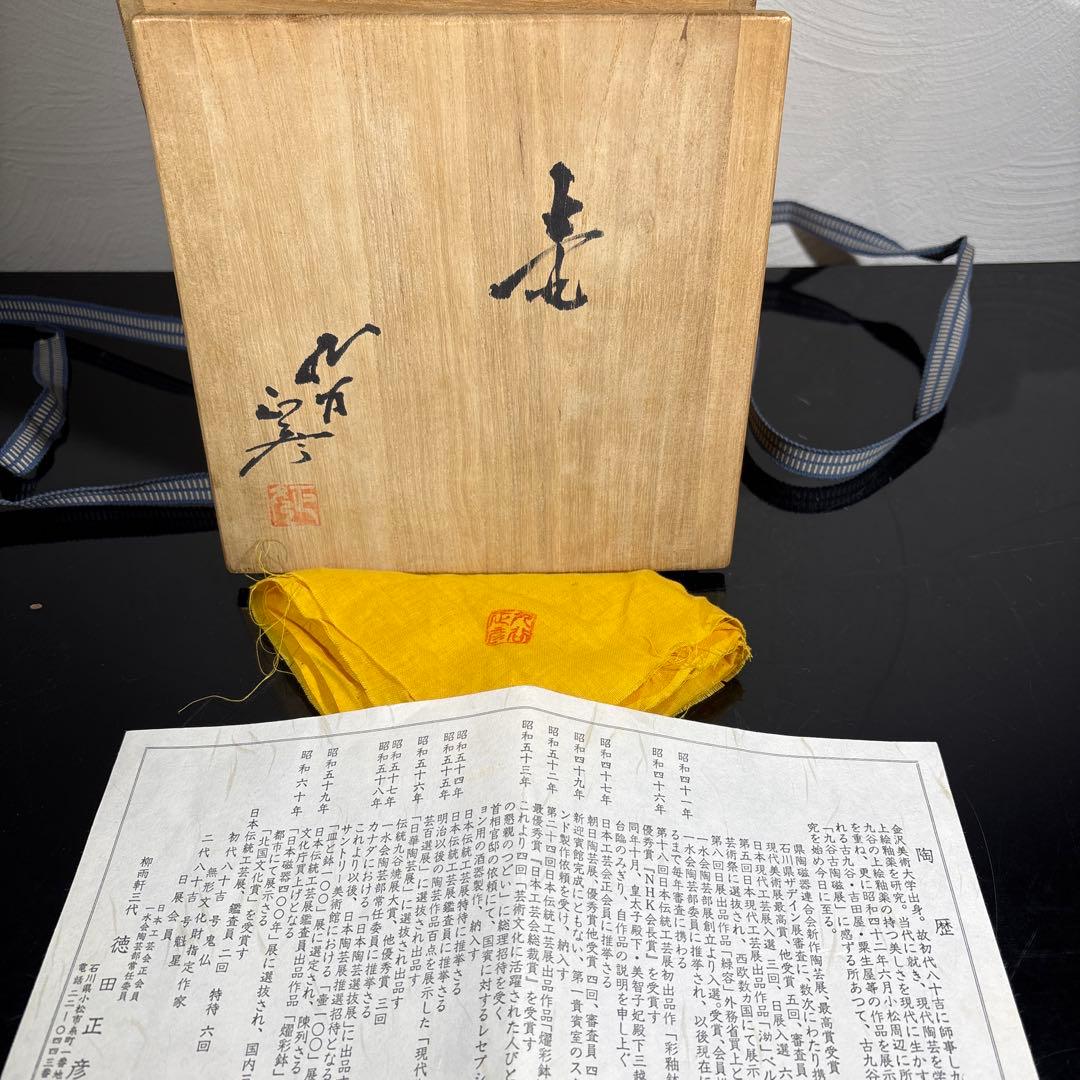 壷
九谷
正彦
陶歴
金沢美術大学出身。故初代八十吉に師事し
上絵釉薬を研究。当代に就き、現代陶芸を学
九谷の上絵釉薬の持つ美しさを現代に生かす
を重ね、更に昭和四十二年六月小松周辺に所
れる古九谷・吉田屋・粟生屋等の作品を展示
「九谷古陶磁展」に感ずる所あつて、古九谷
究を始め今日に至る。
県陶磁器連合会新作陶芸展、最高賞受賞
石川県デザイン展審査に、数次にわたり携
現代美術展最高賞、他受賞 五回、審査員
日本現代工芸展入選 三回、日展入選 六
第五回日本現代工芸展出品作品「泑」ベル
芸術祭に選抜され、西欧数カ国にて展示
昭和四十一年 第八回日展出品作品「緑容」外務省買上と
一水会陶芸部展創立より入選。受賞、会員推
るまで毎年審査に携わる
昭和四十六年 第十八回日本伝統工芸展初出品作「彩釉鉢
優秀賞『NHK会長賞』を受賞す
同年十月、皇太子殿下・美智子妃殿下三越
台臨のみぎり、自作品の説明を申し上ぐ
昭和四十七年 日本工芸会正会員に推挙さる
朝日陶芸展、優秀賞他受賞 四回、審査員 四
昭和四十九年 新迎賓館完成にともない、第一貴賓室のス
ンド製作依頼を受け、納入す
昭和五十二年 第二十四回日本伝統工芸展出品作品「燿彩鉢」
最優秀賞『日本工芸会総裁賞』を受賞す
昭和五十三年 これより四回「芸術文化に活躍された人びと
の懇親のつどい」に総理招待を受く
首相官邸の依頼にて、国賓に対するレセプシ
ョン用の酒器製作、納入す
昭和五十四年 日本伝統工芸展特待に推挙さる
昭和五十五年 日本伝統工芸展鑑査員に推挙さる
明治以後の陶芸作品百点を展示した「現代
昭和五十六年 芸百選展」に選抜され出品す
「日華陶芸展」に選抜され出品す
昭和五十七年 伝統九谷焼大展、他優秀賞 三回
昭和五十八年 一水会陶芸部常任委員に推挙さる
カナダにおける「日本陶芸選抜展」に出品す
これより以後、日本陶芸展推選招待となる
サントリー美術館における「壷一〇〇」展
昭和五十九年 「皿と鉢一〇〇」展に選定され、陳列さる
日本伝統工芸展鑑査員出品作品「燿彩鉢」
文化庁買上げとなる
昭和六十年 「日本磁器四〇〇年」展に選抜され、国内三
都市にて展示さる
「北国文化賞」を受賞す
日本伝統工芸展、鑑査員 二回 特待 六回
初代 八十吉 号 鬼仏
無形文化財指定作家
二代 八十吉 号 魁星
日展会員
日本工芸会正会員
一水会陶芸部常任委員
柳雨軒三代 徳田正彦
石川県小松市糸町一番地
電話二二—〇四四三番